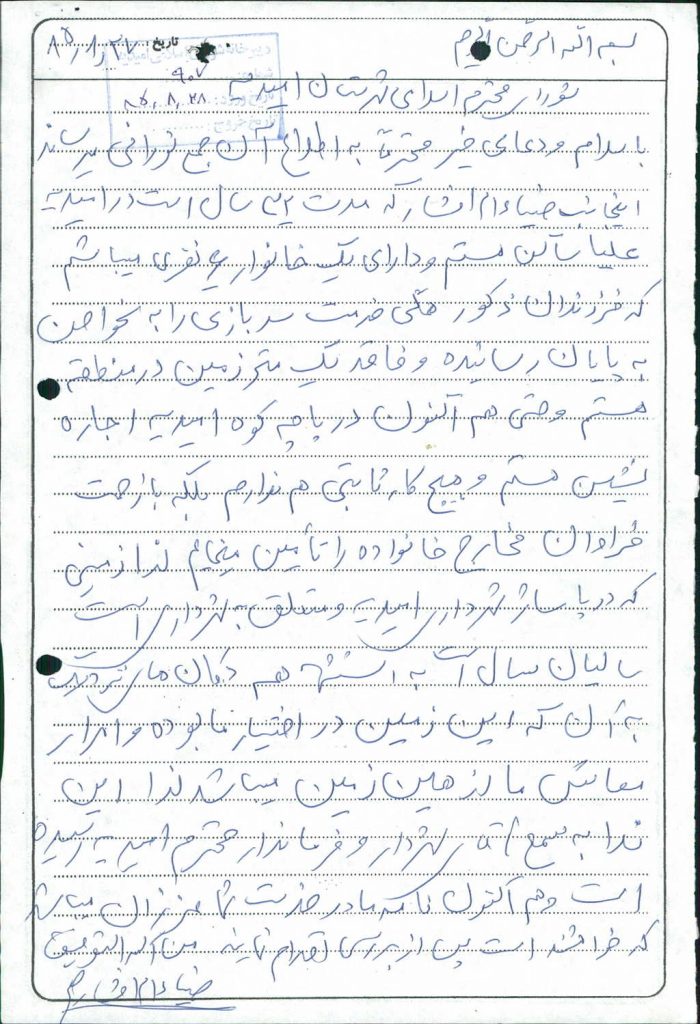 بسم الله الرحمن الرحیم
تاریخ: ۸۵/۸/۲۷
۹۰۷
۸۵/۸/۲۸
شورای محترم اسلامی شهرستان امیدیه
با سلام و دعای خیر محترماً به اطلاع آن جمع نورانی میرساند
اینجانب ضیاء ام افشار که مدت ۳۲ سال است در امیدیه
علیا ساکن هستم و دارای یک خانوار نفری میباشم
که فرزندان ذکور همگی خدمت سربازی را به نحو احسن
به پایان رسانیده و فاقد یک متر زمین در منطقه
هستم و حتی هم اکنون در پاچه کوه امیدیه اجاره
نشین هستم و هیچ کار ثابتی هم ندارم بلکه با زحمت
فراوان مخارج خانواده را تأمین مینمایم لذا زمینی
که در پاساژ شهرداری امیدیه و متعلق به شهرداری است
سالیان سال است به استشهاد هم دکان های نزدیک
به آن که این زمین در اختیار ما بوده و امرار
معاش ما از همین زمین میباشد لذا این
ندا به سمع آقای شهردار و فرماندار محترم امیدیه رسیده
است و هم اکنون نامه ما در خدمت شما عزیزان میباشد
که خواهشمند است پس از بررسی اقدام نمایید من الله التوفیق
ضیاء ام افشار